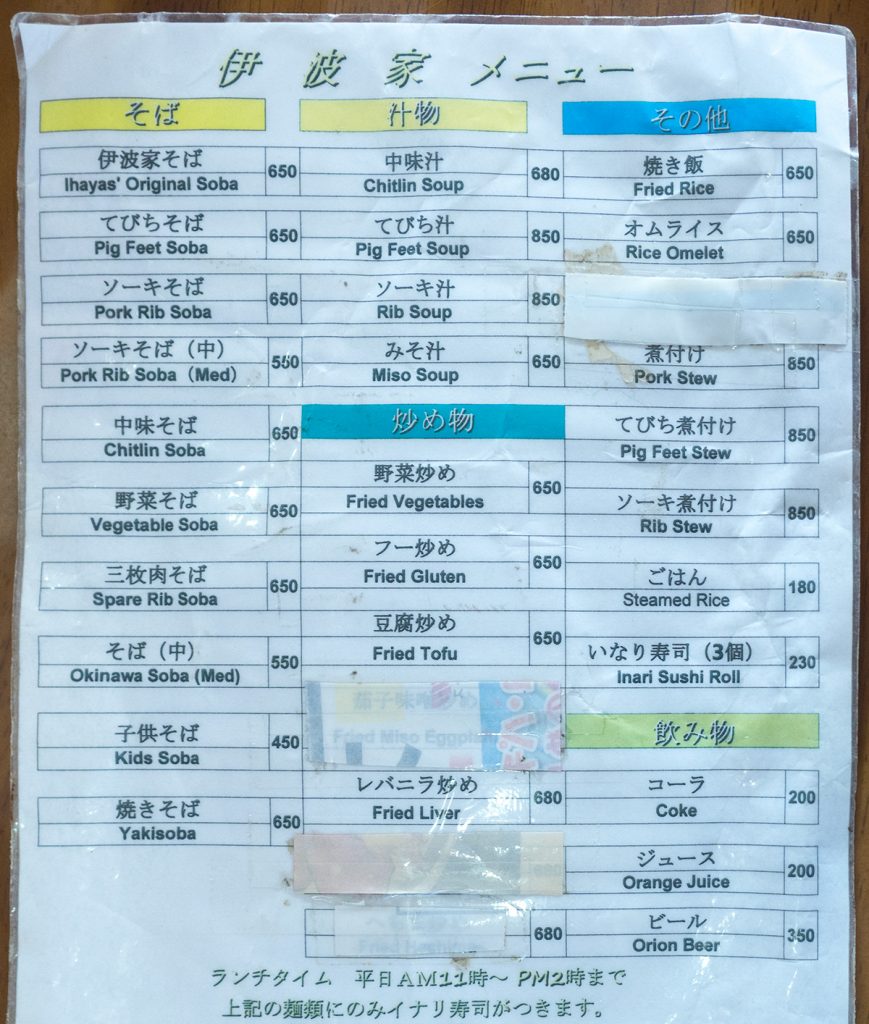 伊波家 メニュー
そば
伊波家そば 650
Ihayas' Original Soba
てびちそば 650
Pig Feet Soba
ソーキそば 650
Pork Rib Soba
ソーキそば（中） 550
Pork Rib Soba（Med）
中味そば 650
Chitlin Soba
野菜そば 650
Vegetable Soba
三枚肉そば 650
Spare Rib Soba
そば（中） 550
Okinawa Soba (Med)
子供そば 450
Kids Soba
焼きそば 650
Yakisoba
汁物
中味汁 680
Chitlin Soup
てびち汁 850
Pig Feet Soup
ソーキ汁 850
Rib Soup
みそ汁 650
Miso Soup
炒め物
野菜炒め 650
Fried Vegetables
フー炒め 650
Fried Gluten
豆腐炒め 650
Fried Tofu
茄子味噌炒め
Fried Miso
レバニラ炒め 680
Fried Liver
680
Fried
その他
焼き飯 650
Fried Rice
オムライス 650
Rice Omelet
煮付け 850
Pork Stew
てびち煮付け 850
Pig Feet Stew
ソーキ煮付け 850
Rib Stew
ごはん 180
Steamed Rice
いなり寿司（3個） 230
Inari Sushi Roll
飲み物
コーラ 200
Coke
ジュース 200
Orange Juice
ビール 350
Orion Beer
ランチタイム 平日AM11時～PM2時まで
上記の麺類にのみイナリ寿司がつきます。